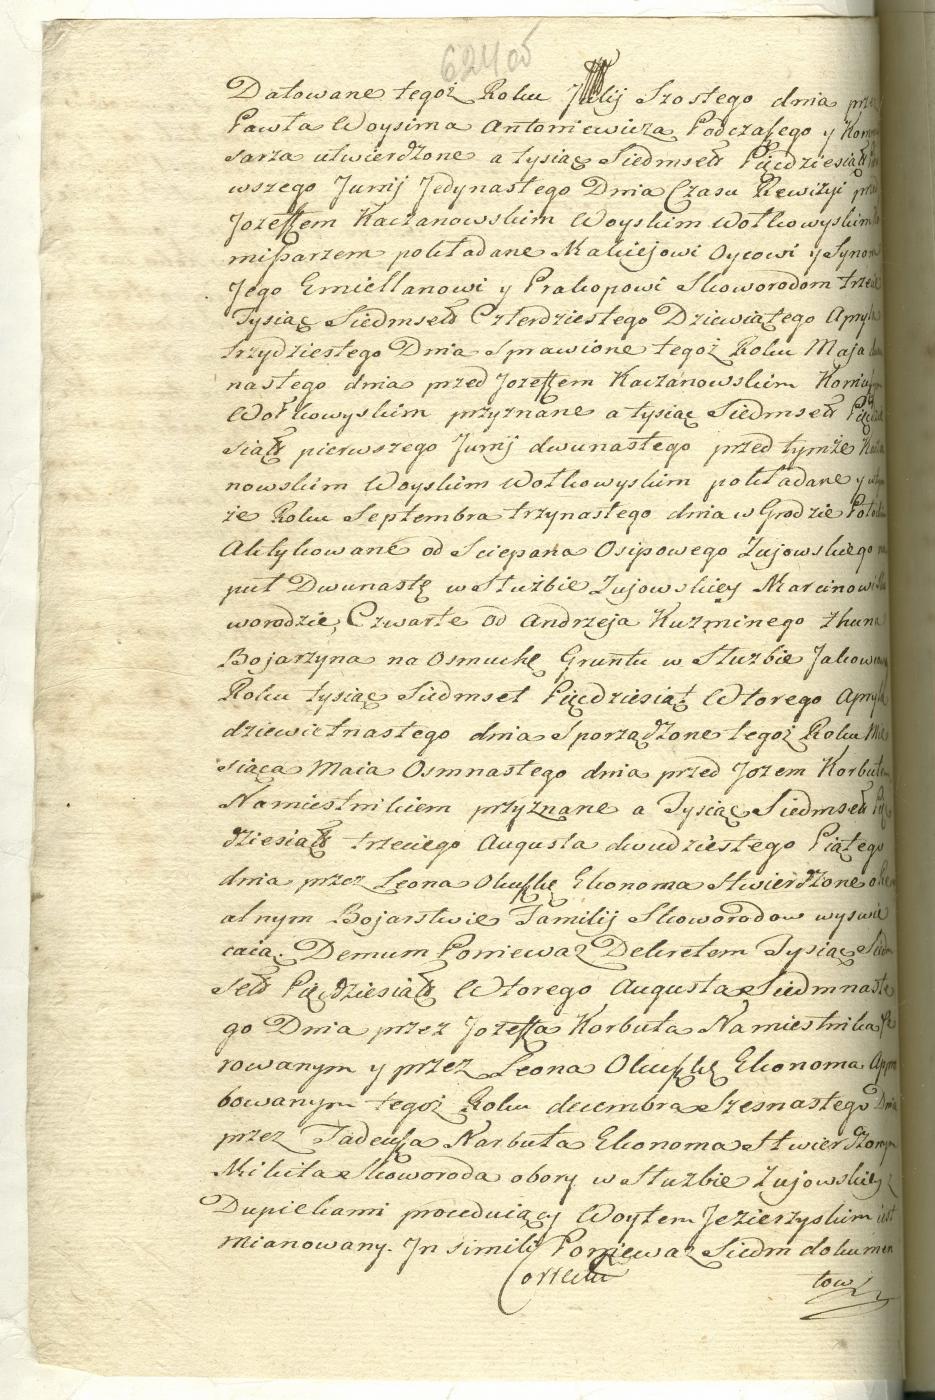 624 об
Datowane tegoż Roku Julij Szostego dnia prze
Pawła Woysima Antoniewicza Podczaszego y Kom
sarza utwierdzone a tysiąc Siedmset Pięcdziesiąt
wszego Junij Jedynastego Dnia Czasu Rewizyi prze
Jozeffem Kaczanowskim Woyskim Wołkowyskim
missarzem pokładane Makiejowi Oycowi y Synom
Jego Emiellanowi y Prakopowi Skoworodom trzecie
Tysiąc Siedmset Czterdziestego Dziewiątego Apryla
trzydziestego Dnia Sprawione tegoż Roku Maja
nastego dnia przed Jozeffem Kaczanowskim
Wołkowyskim przyznane a tysiąc Siedmset Pięcdzie
siąt pierwszego Junij dwunastego przed tymże Kacza
nowskim Woyskim Wołkowyskim pokładane y
że Roku Septembra trzynastego dnia w Grodzie
Aktykowane od Sciepana Osipowego Zujowskiego na
puł Dwunastę w Słuzbie Zujowskiey Marcinowi
worodzie, Czwarte od Andrzeja Kuźminego
Bojarzyna na Osmuchę Gruntu w Słuzbie
Roku tysiąc Siedmset Pięcdziesiąt Wtorego Apryla
dziewietnastego dnia Sporządzone tegoż Roku Mie
siąca Maia Osmnastego dnia przed Jozem Korbutem
Namiestnikiem przyznane a Tysiąc Siedmset Pię
dziesiąt trzeciego Augusta dwudziestego Piątego
dnia przez Leona Okuszkę Ekonoma stwierdzone o
alnym Bojarstwie Familij Skoworodow wyswie
caią. Demum Poniewaz Dekretem Tysiąc Siedm
set Pięcdziesiąt Wtorego Augusta Siedmnaste
go Dnia przez Jozeffa Korbuta Namiestnika Fe
rowanym y przez Leona Okuszkę Ekonoma Appro
bowanym tegoż Roku decembra Szesnastego Dnia
przez Tadeusza Narbuta Ekonoma stwierdzonym
Mikita Skoworoda obory w Słuzbie Zujowskiey z
Dupiekami procedujący Woytem Jezierzyskim iest
mianowany. In simili Poniewaz Siedm dokumen
Correcta
tow